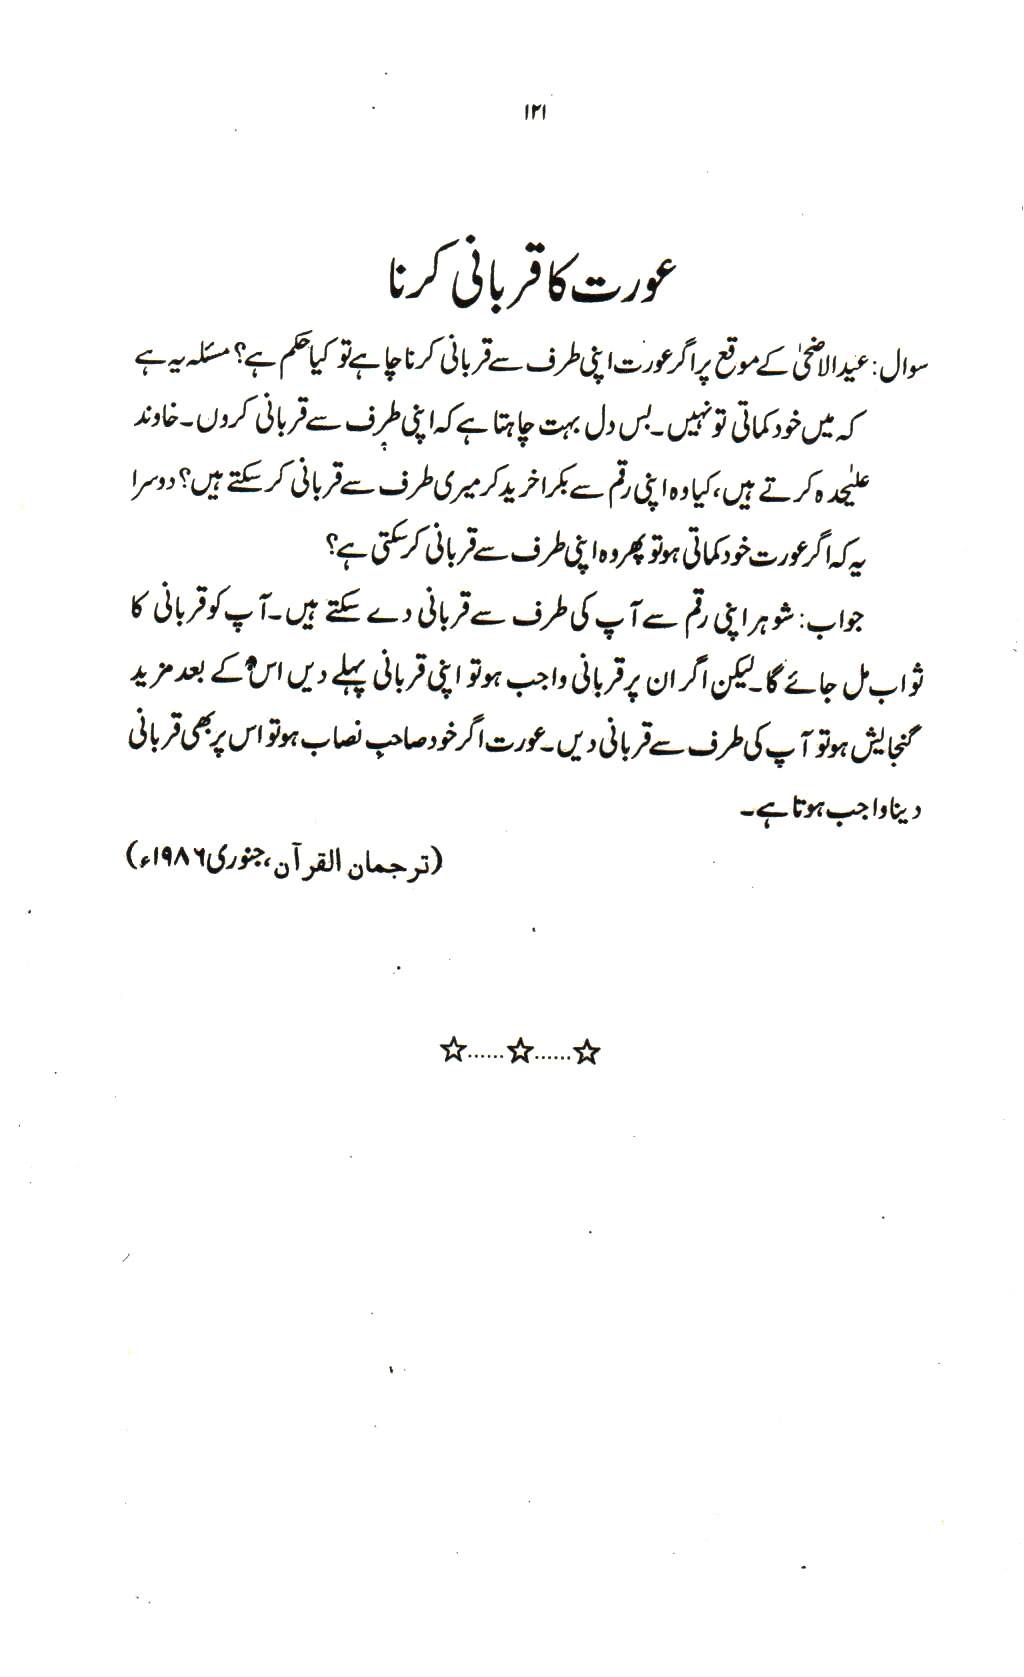 ۱۲۱
عورت کا قربانی کرنا
سوال: عیدالاضحیٰ کے موقع پر اگر عورت اپنی طرف سے قربانی کرنا چاہے تو کیا حکم ہے؟ مسئلہ یہ ہے
کہ میں خود کماتی تو نہیں۔ بس دل بہت چاہتا ہے کہ اپنی طرف سے قربانی کروں۔ خاوند
علیٰحدہ کرتے ہیں، کیا وہ اپنی رقم سے بکرا خرید کر میری طرف سے قربانی کر سکتے ہیں؟ دوسرا
یہ کہ اگر عورت خود کماتی ہو تو پھر وہ اپنی طرف سے قربانی کر سکتی ہے؟
جواب: شوہر اپنی رقم سے آپ کی طرف سے قربانی دے سکتے ہیں۔ آپ کو قربانی کا
ثواب مل جائے گا۔ لیکن اگر ان پر قربانی واجب ہو تو اپنی قربانی پہلے دیں اس کے بعد مزید
گنجایش ہو تو آپ کی طرف سے قربانی دیں۔ عورت اگر خود صاحبِ نصاب ہو تو اس پر بھی قربانی
دینا واجب ہوتا ہے۔
(ترجمان القرآن، جنوری ۱۹۸۶ء)
☆......☆......☆